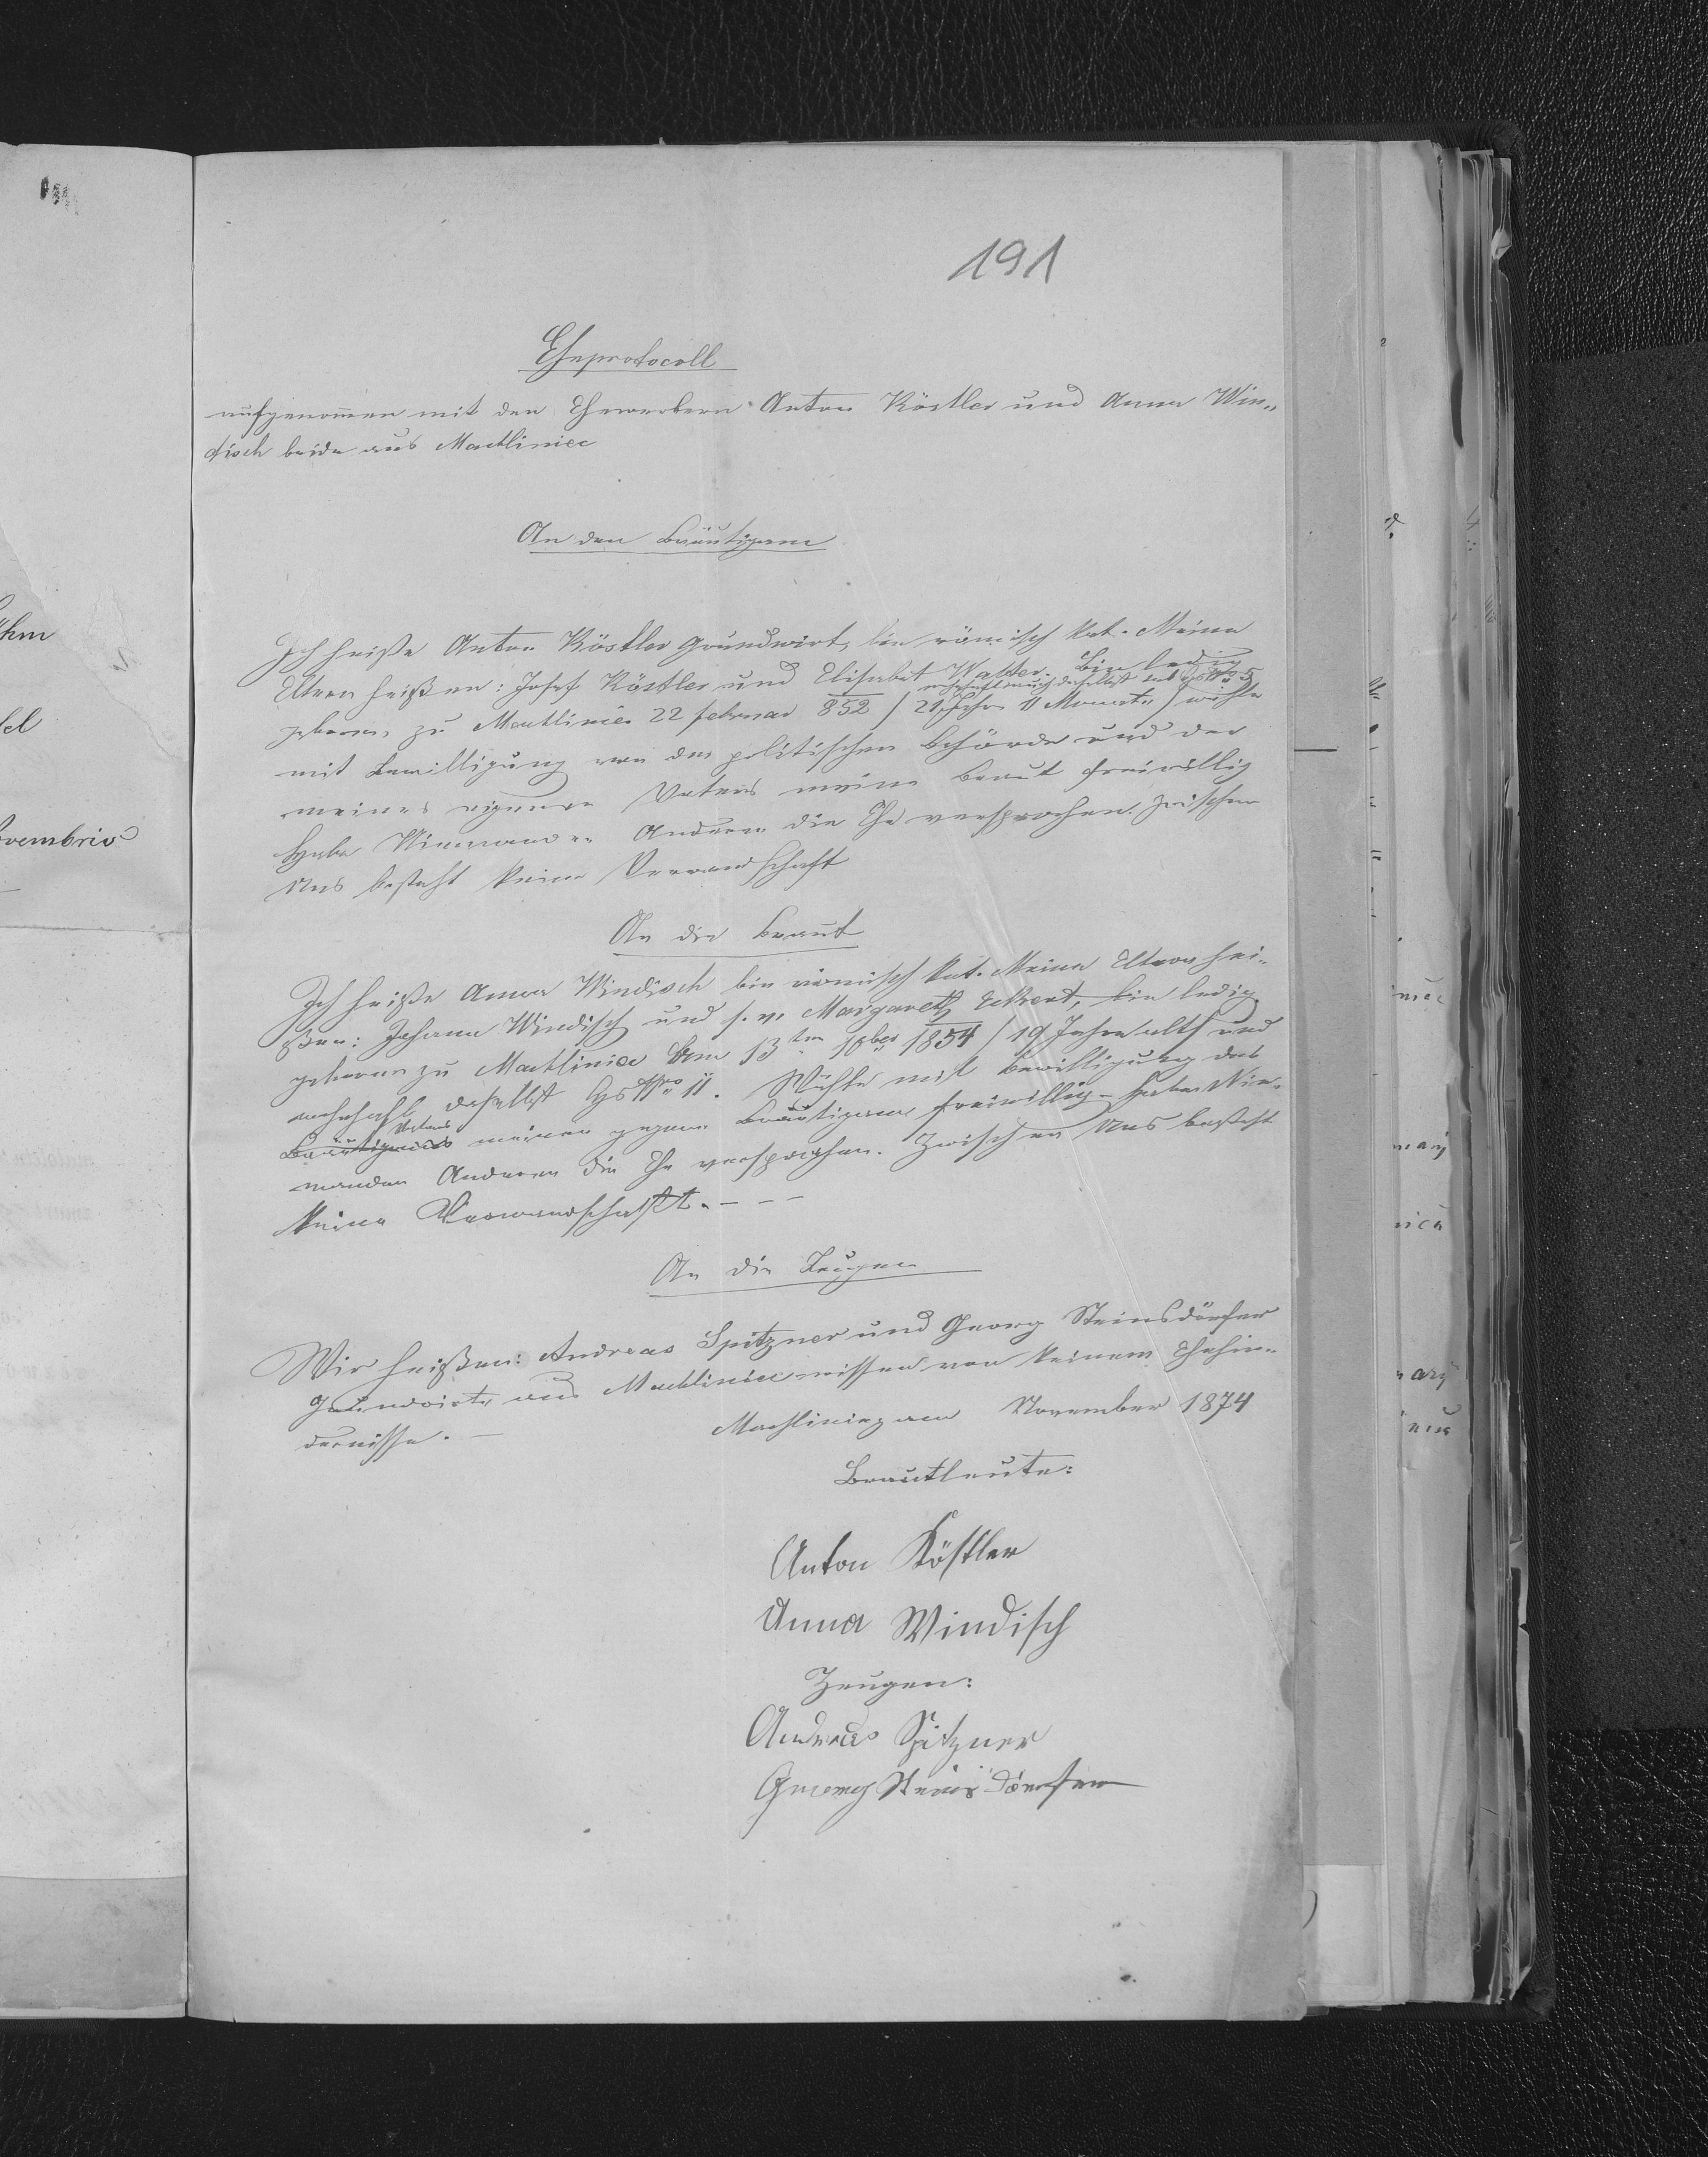 191
Eheprotocoll
aufgenommen mit den Ehewerbern Anton Köstler und Anna Win„
disch beide aus Machliniec
An den Bräutigam
Ich heiße Anton Köstler Grundwirt, bin römisch kat. Meine
Eltern heißen: Josef Köstler und Elisabet Walter. Bin ledig
wohnhaft auch daselbst sub HsNro 5
geboren zu Machliniec 22 februar 852 / 21 Jahre 11 Monate / wähle
mit Bewilligung von der politischen Behörde und der
meines eigenen Vaters meine Braut freiwillig
Habe Niemanden Anderen die Ehe versprochen. Zwischen
Uns besteht keine Verwandschaft
An die Braut
Ich heiße Anna Windisch bin römisch kat. Meine Eltern hei„
ßen: Johann Windisch und Margareth Eckert, bin ledig
geboren zu Machliniec den 13ten 10ber 1854 / 19 Jahre alt / und
wohnhaft daselbst HsNro 11. Wähle mit Bewilligung des
Vaters
Bräutigams meinen Bräutigam freiwillig – habe Nie„
manden Anderen die Ehe versprochen. Zwischen Uns besteht
keine Verwandschafft. – – –
An die Zeugen
Wir heißen: Andreas Spitzner und Georg Steinsdörfer
Grundwirte aus Machliniec wissen von keinem Ehehin„
dernisse. –
Machliniez am November 1874
Brautleute:
Anton Köstler
Anna Windisch
Zeugen:
Andreas Spitzner
Georg Steinsdörfer
ühm
el
ovembris